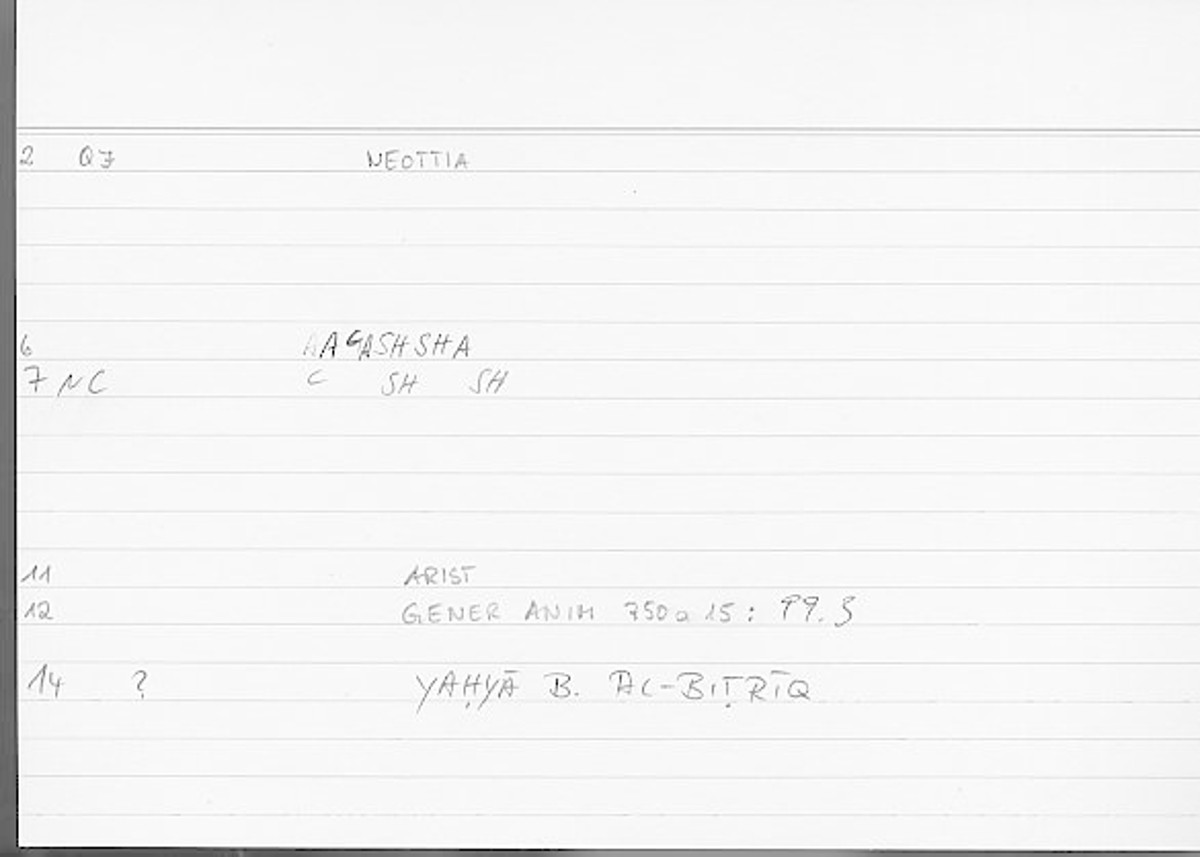 2 Q7 NEOTTIA
6 AAGASHSHA
7 NC C SH SH
11 ARIST
12 GENER ANIM 750a15: 99.3
14 ? YAḤYĀ B. AL-BIṬRĪQ